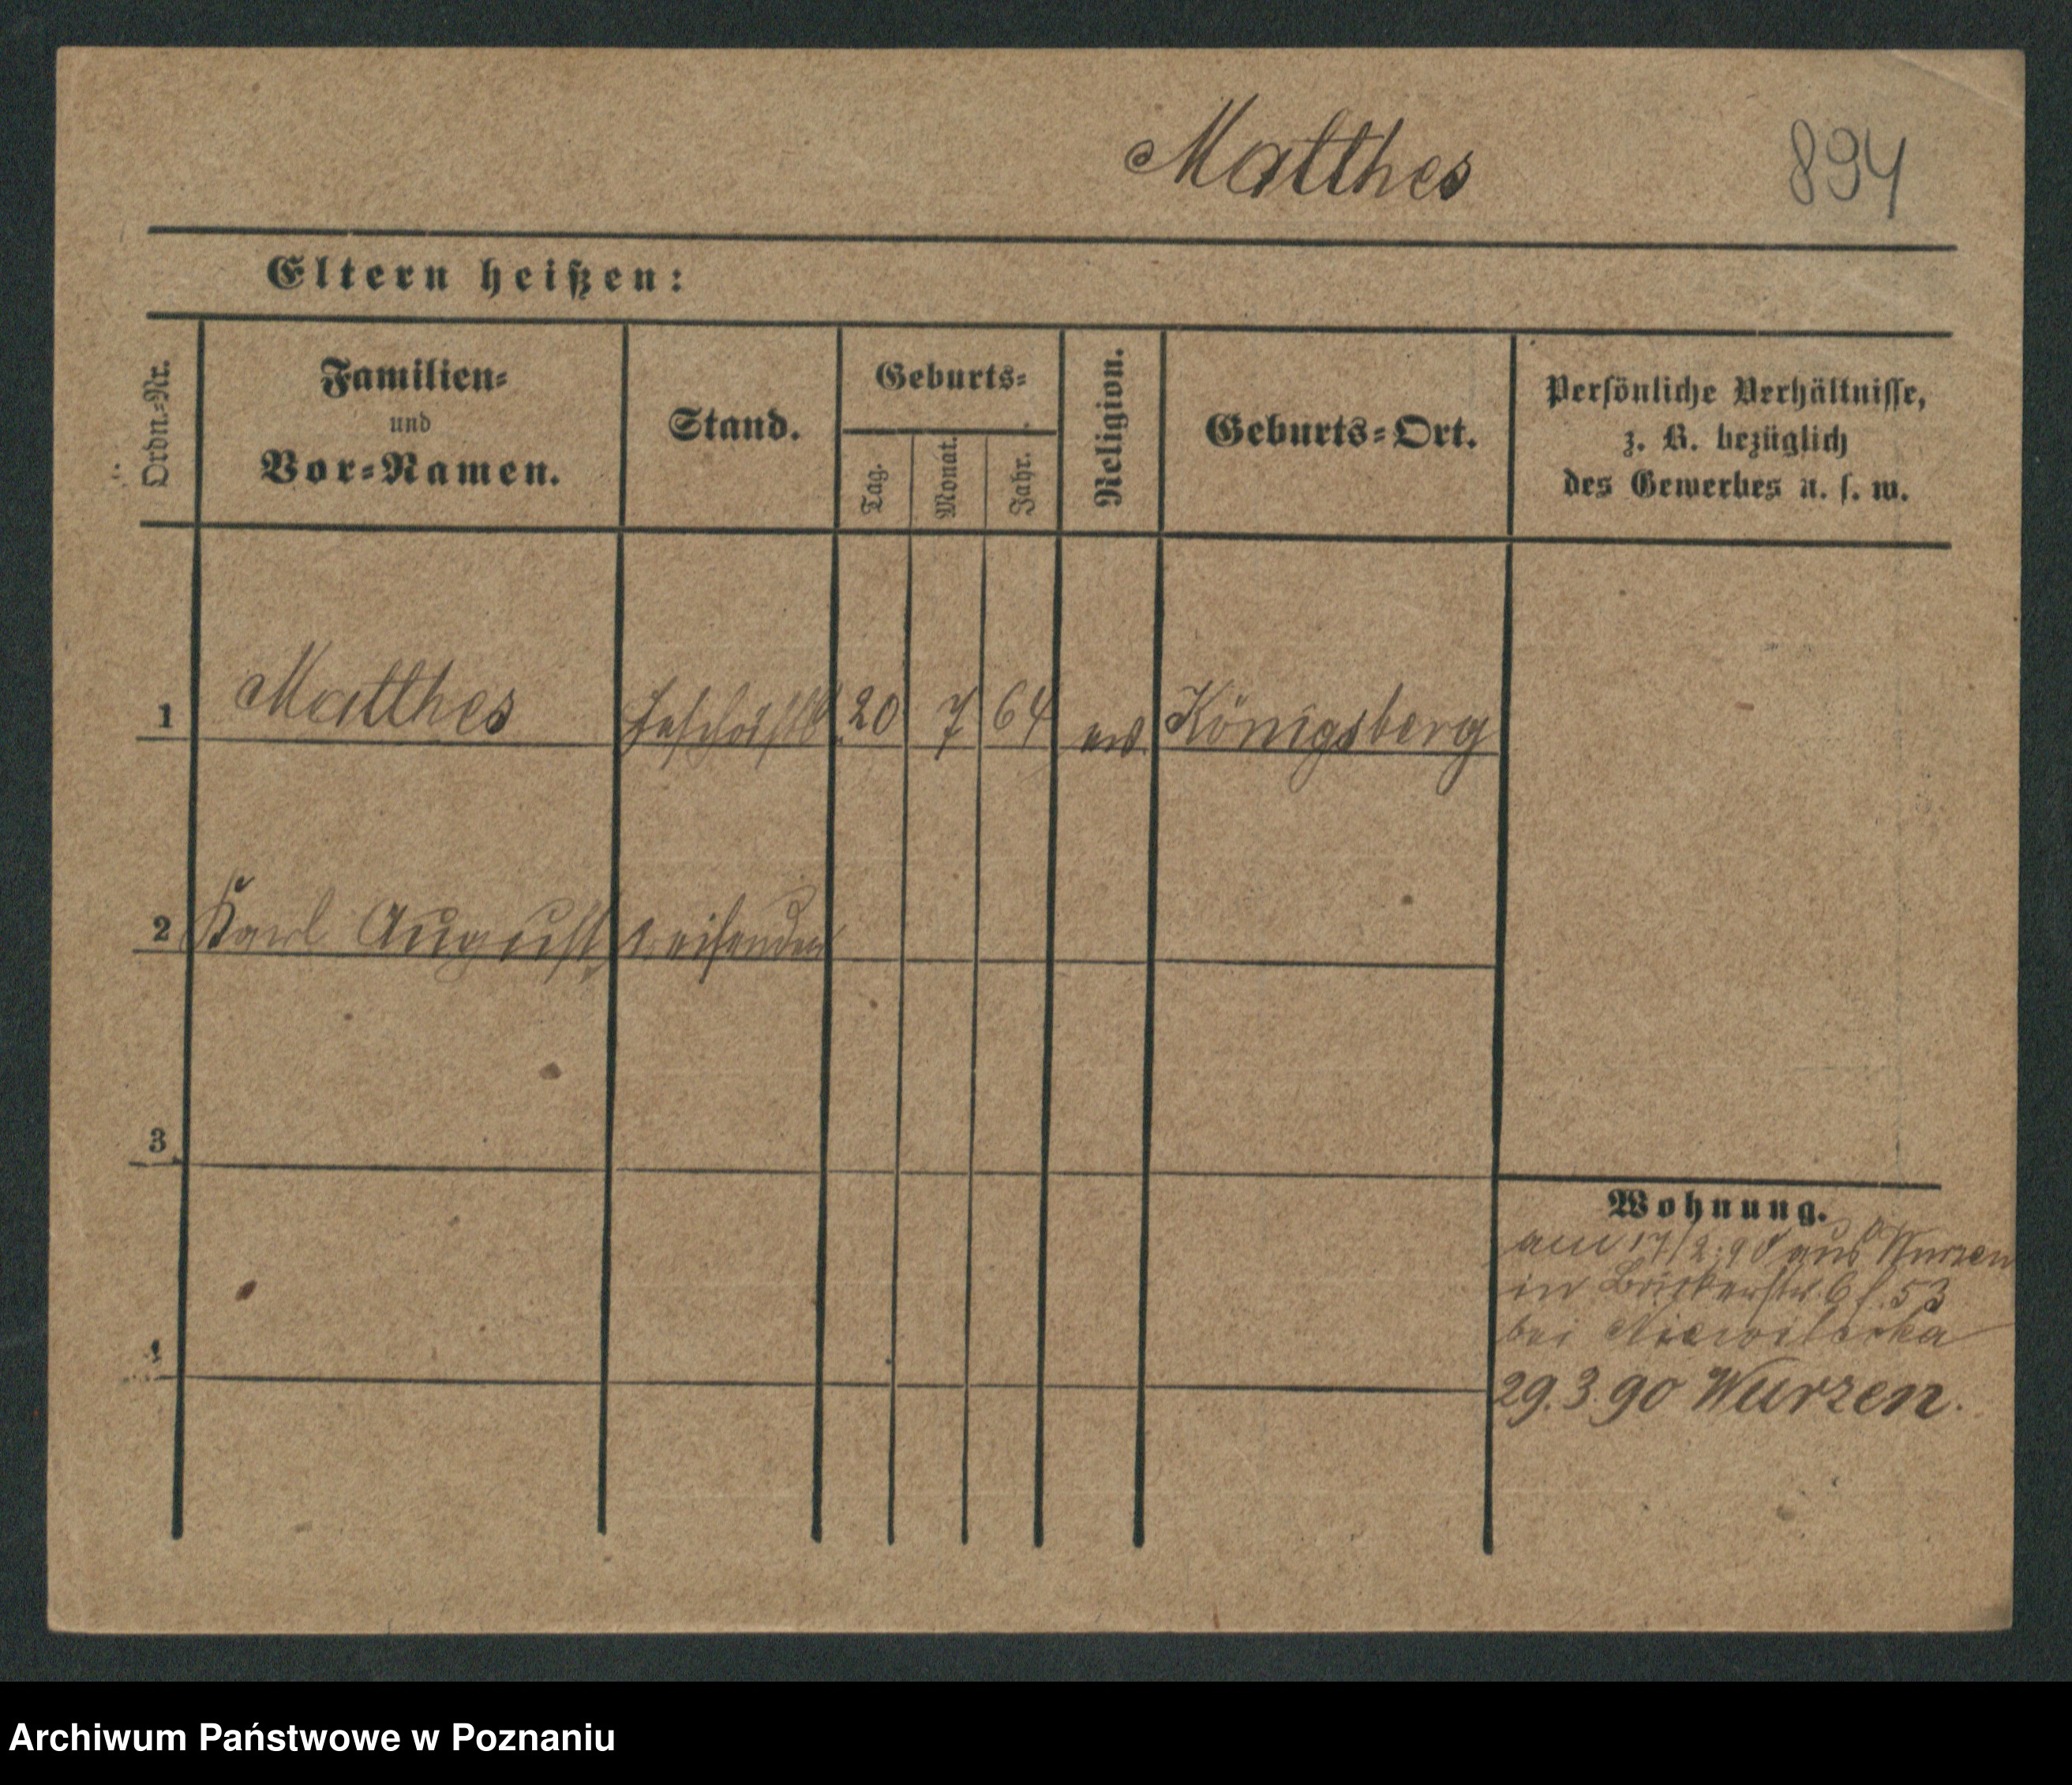 Matthes 894
Eltern heißen:
Ordn.-Nr.
Familien-
und
Vor-Namen.
Stand.
Geburts-
Tag.
Monat.
Jahr.
Religion.
Geburts-Ort.
Persönliche Verhältnisse,
z. B. bezüglich
des Gewerbes u. s. w.
1 Matthes 20 7 64 ev. Königsberg
2 Karl August reisender
3
4
Wohnung.
am 17/2.90 aus Wurzen
in 53
bei
29.3.90 Wurzen.
Archiwum Państwowe w Poznaniu